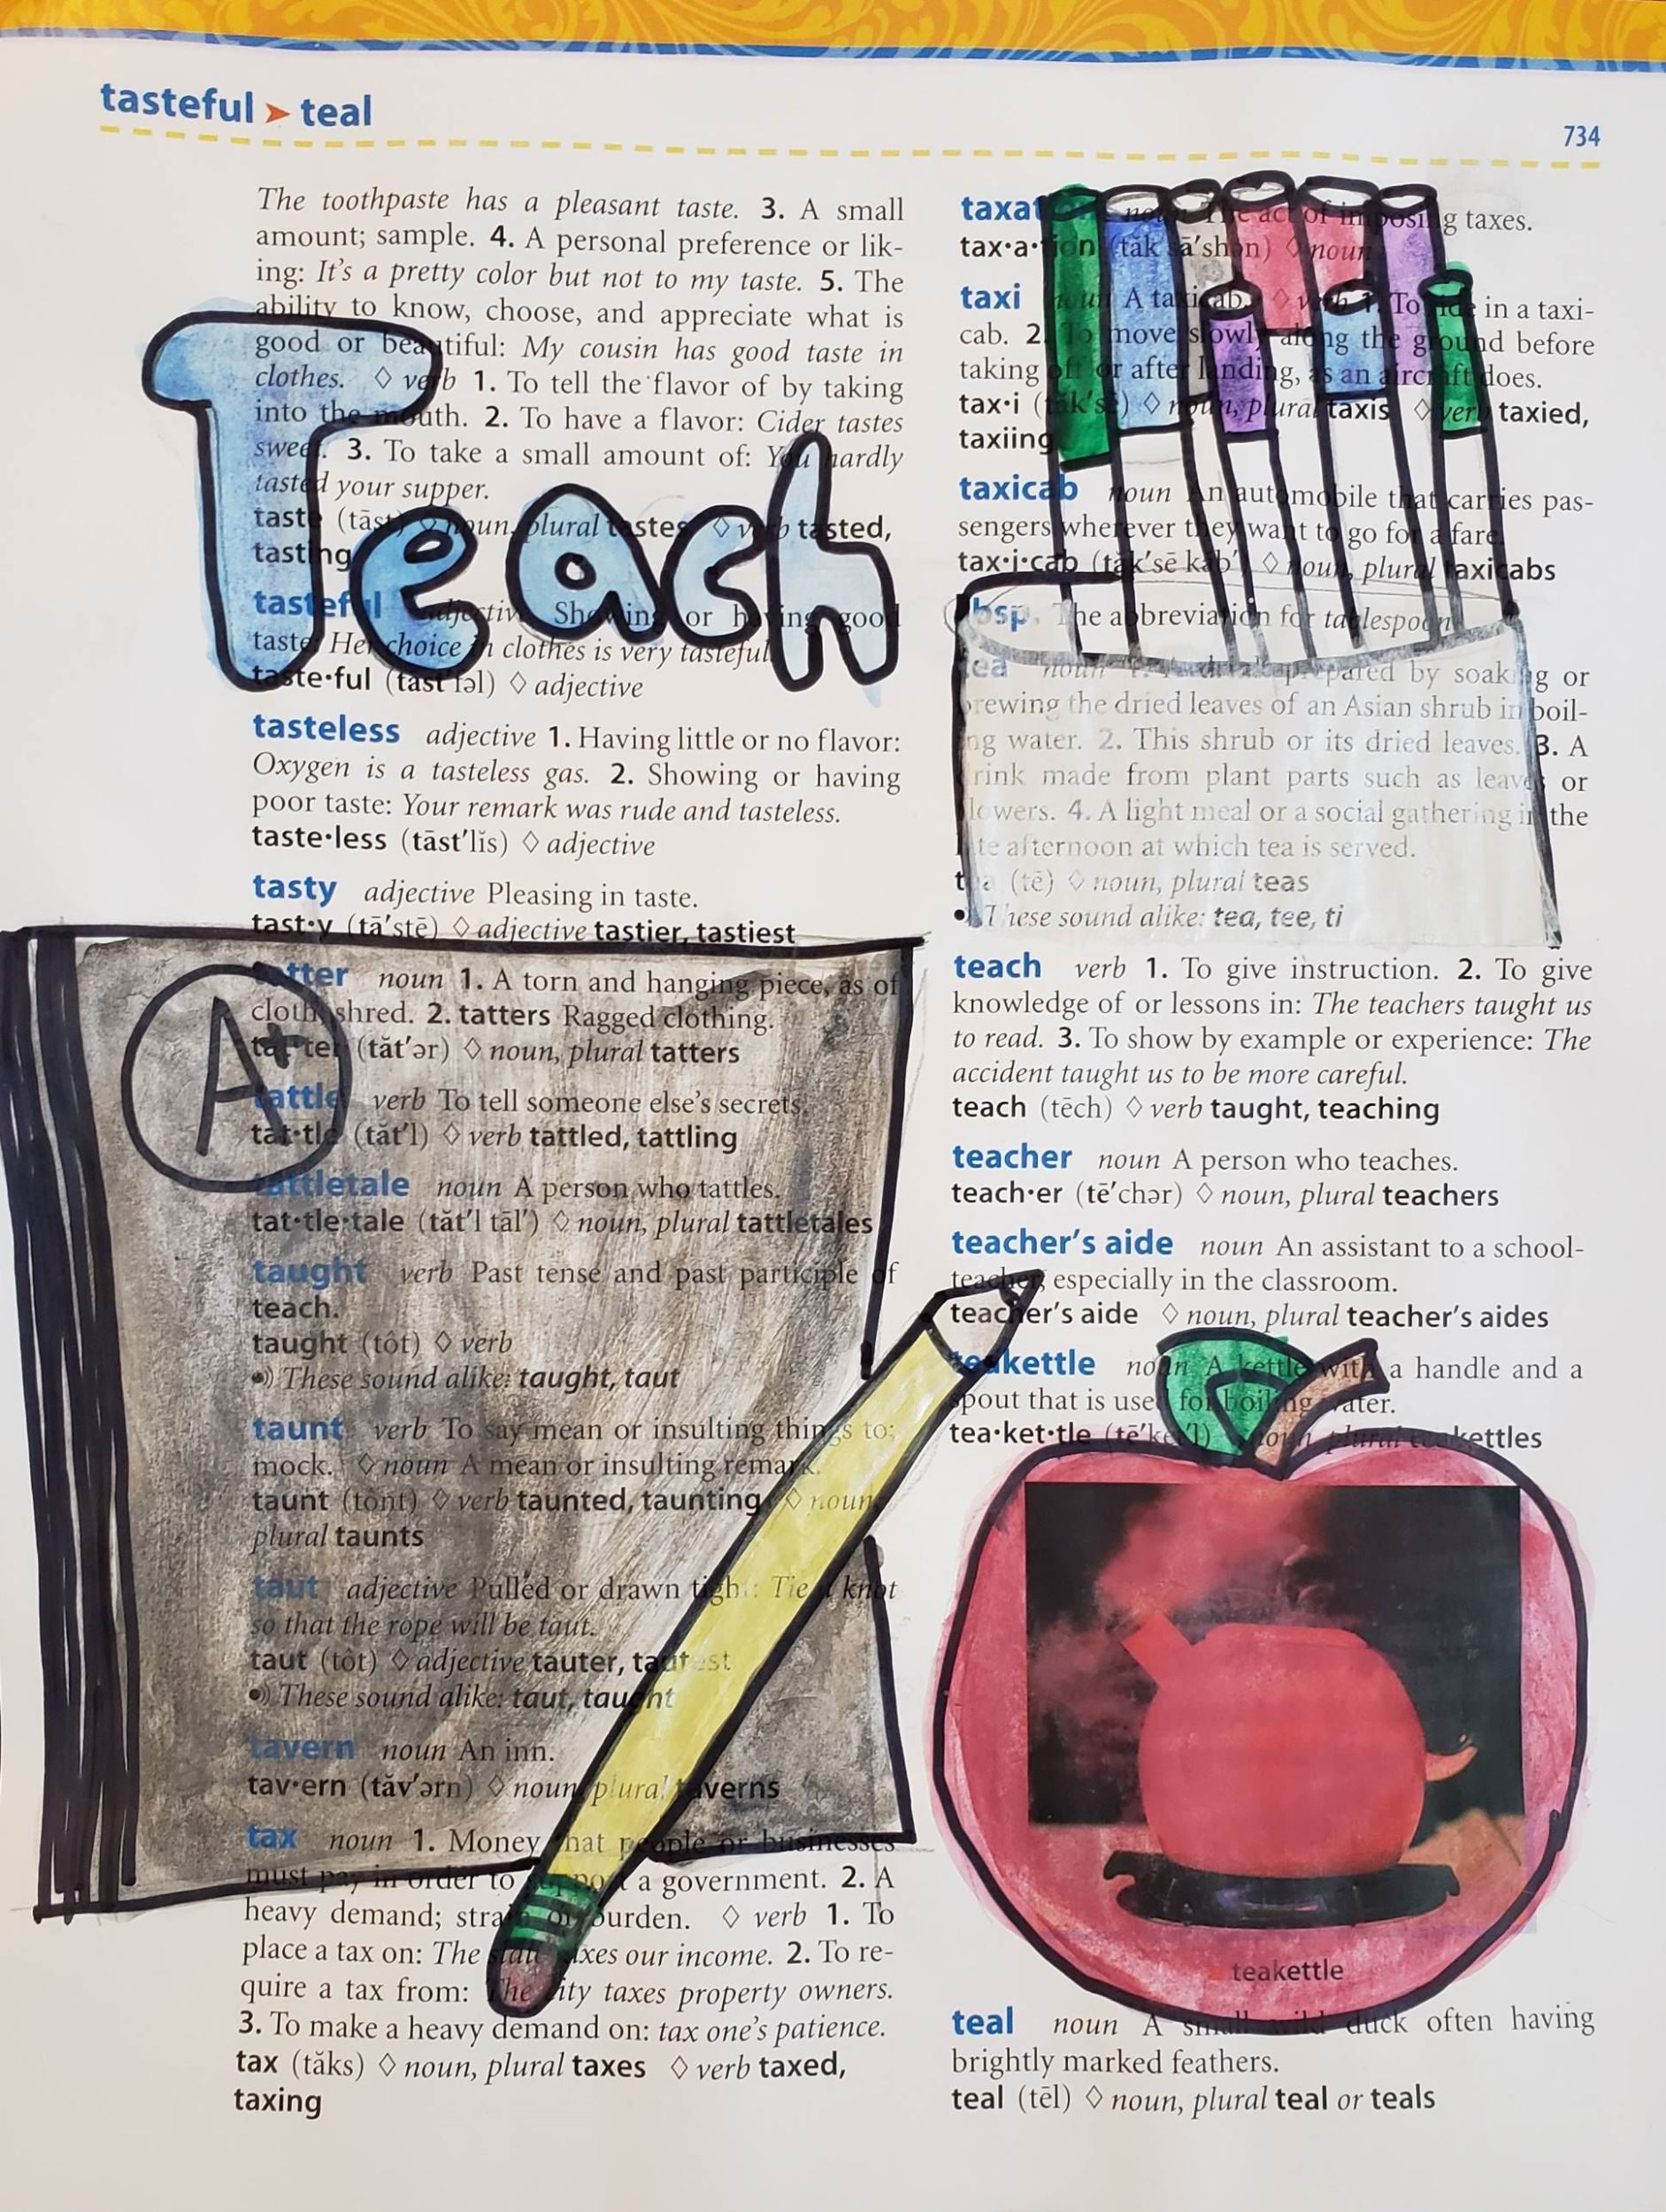 tasteful ➤ teal
734
The toothpaste has a pleasant taste. 3. A small
amount; sample. 4. A personal preference or lik-
ing: It's a pretty color but not to my taste. 5. The
ability to know, choose, and appreciate what is
good or beautiful: My cousin has good taste in
clothes. ◊ verb 1. To tell the flavor of by taking
into the mouth. 2. To have a flavor: Cider tastes
sweet. 3. To take a small amount of: You hardly
tasted your supper.
taste (tāst) ◊ noun, plural tastes ◊ verb tasted,
tasting
Teach
tasteful adjective Showing or having good
taste: Her choice in clothes is very tasteful.
taste•ful (tāst′fəl) ◊ adjective
tasteless adjective 1. Having little or no flavor:
Oxygen is a tasteless gas. 2. Showing or having
poor taste: Your remark was rude and tasteless.
taste•less (tāst′lĭs) ◊ adjective
tasty adjective Pleasing in taste.
tast•y (tā′stē) ◊ adjective tastier, tastiest
A+
tatter noun 1. A torn and hanging piece, as of
cloth; shred. 2. tatters Ragged clothing.
tat•ter (tăt′ər) ◊ noun, plural tatters
tattle verb To tell someone else's secrets.
tat•tle (tăt′l) ◊ verb tattled, tattling
tattletale noun A person who tattles.
tat•tle•tale (tăt′l tāl′) ◊ noun, plural tattletales
taught verb Past tense and past participle of
teach.
taught (tôt) ◊ verb
These sound alike: taught, taut
taunt verb To say mean or insulting things to;
mock. ◊ noun A mean or insulting remark.
taunt (tônt) ◊ verb taunted, taunting ◊ noun,
plural taunts
taut adjective Pulled or drawn tight: Tie a knot
so that the rope will be taut.
taut (tôt) ◊ adjective tauter, tautest
These sound alike: taut, taught
tavern noun An inn.
tav•ern (tăv′ərn) ◊ noun, plural taverns
tax noun 1. Money that people or businesses
must pay in order to support a government. 2. A
heavy demand; strain or burden. ◊ verb 1. To
place a tax on: The state taxes our income. 2. To re-
quire a tax from: The city taxes property owners.
3. To make a heavy demand on: tax one's patience.
tax (tăks) ◊ noun, plural taxes ◊ verb taxed,
taxing
taxation noun The act of imposing taxes.
tax•a•tion (tăk sā′shən) ◊ noun
taxi noun A taxicab. ◊ verb 1. To ride in a taxi-
cab. 2. To move slowly along the ground before
taking off or after landing, as an aircraft does.
tax•i (tăk′sē) ◊ noun, plural taxis ◊ verb taxied,
taxiing
taxicab noun An automobile that carries pas-
sengers wherever they want to go for a fare.
tax•i•cab (tăk′sē kăb′) ◊ noun, plural taxicabs
tbsp. The abbreviation for tablespoon.
tea noun 1. A drink prepared by soaking or
brewing the dried leaves of an Asian shrub in boil-
ing water. 2. This shrub or its dried leaves. 3. A
drink made from plant parts such as leaves or
flowers. 4. A light meal or a social gathering in the
late afternoon at which tea is served.
tea (tē) ◊ noun, plural teas
These sound alike: tea, tee, ti
teach verb 1. To give instruction. 2. To give
knowledge of or lessons in: The teachers taught us
to read. 3. To show by example or experience: The
accident taught us to be more careful.
teach (tēch) ◊ verb taught, teaching
teacher noun A person who teaches.
teach•er (tē′chər) ◊ noun, plural teachers
teacher's aide noun An assistant to a school-
teacher, especially in the classroom.
teacher's aide ◊ noun, plural teacher's aides
teakettle noun A kettle with a handle and a
spout that is used for boiling water.
tea•ket•tle (tē′kĕt′l) ◊ noun, plural teakettles
teakettle
teal noun A small wild duck often having
brightly marked feathers.
teal (tēl) ◊ noun, plural teal or teals